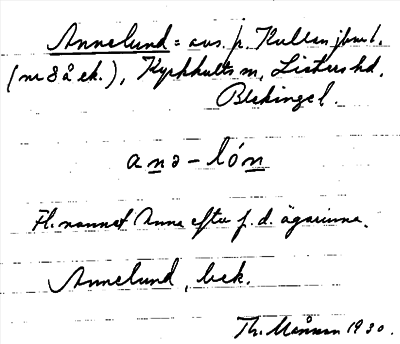 Annelund = avs. p. Kullan jbruk.
(nr 8 å ek.), Kyrkhults sn, Listers hd,
Blekinge l.
anə – lón
Fl. namnet Anna efter f. d. ägarinna.
Annelund, bek.
Th. 1930.